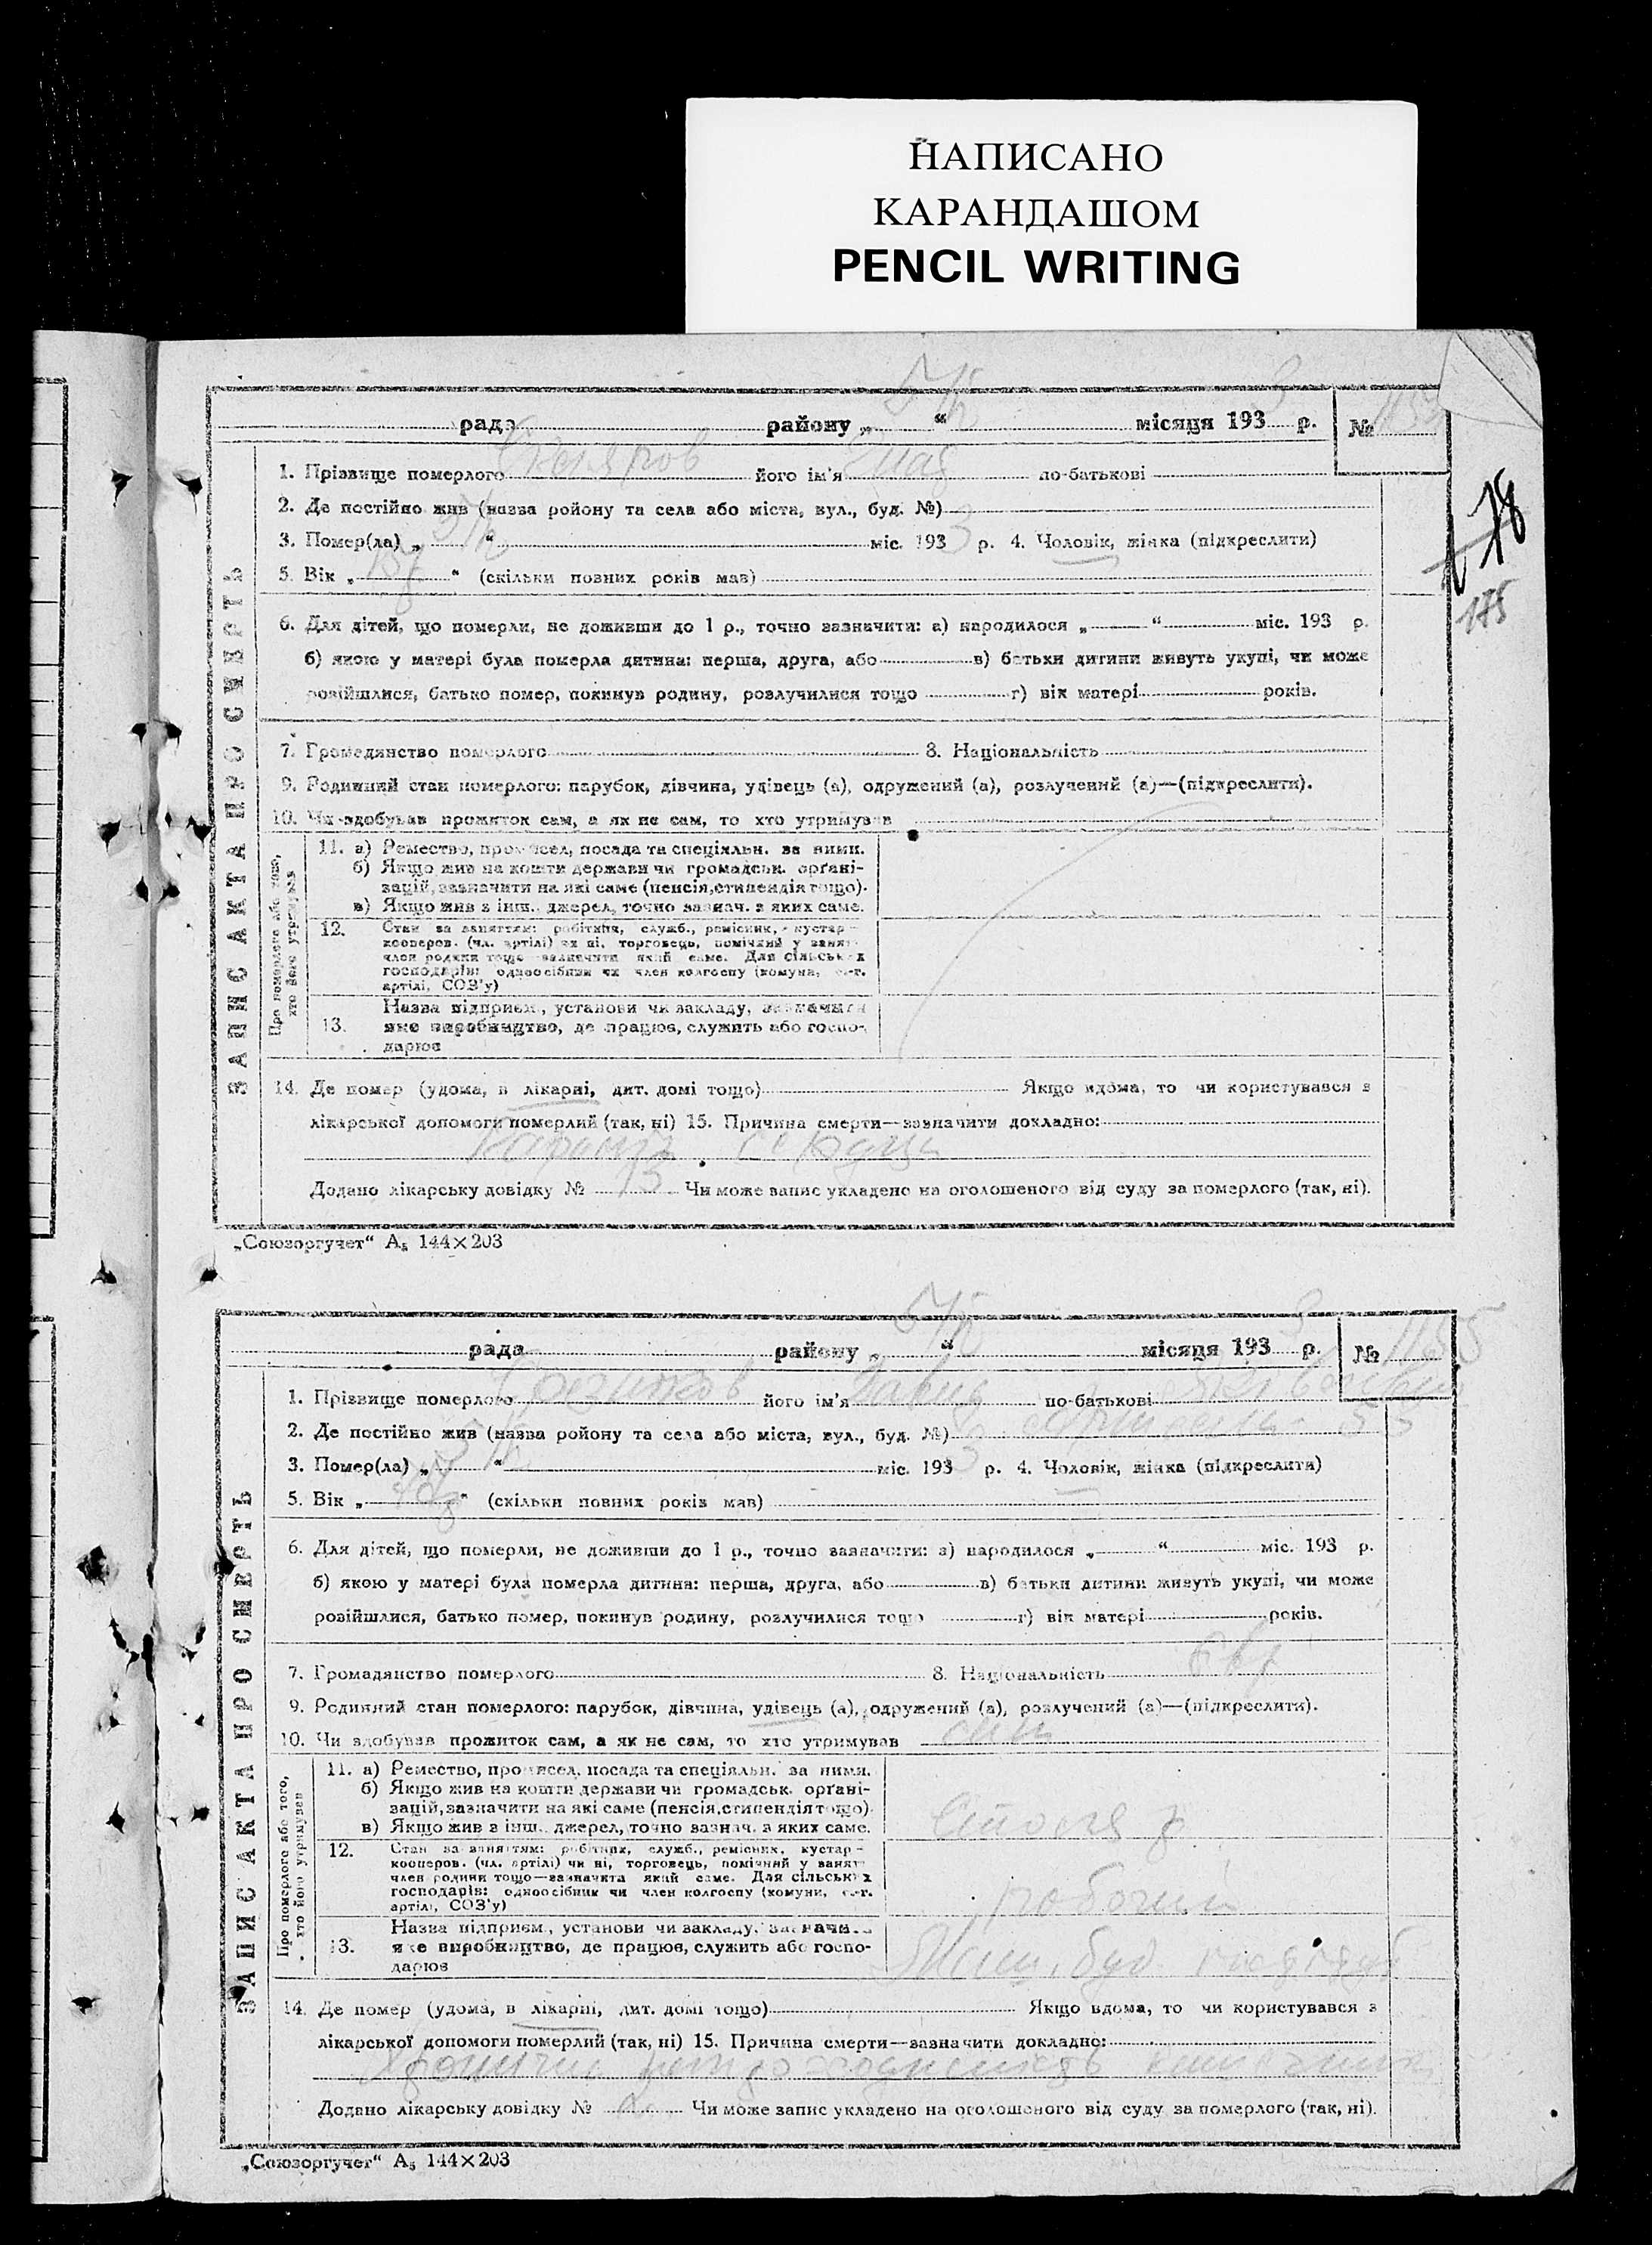 НАПИСАНО
КАРАНДАШОМ
PENCIL WRITING
рада району „ “ місяця 193 3 р. №
1. Прізвище померлого його ім'я по-батькові
2. Де постійно жив (назва ройону та села або міста, вул., буд. №)
3. Помер(ла) „ “ міс. 193 3 р. 4. Чоловік, жінка (підкреслити)
5. Вік „ “ (скільки повних років мав)
178
175
6. Для дітей, що померли, не доживши до 1 р., точно зазначити: а) народилося „ “ міс. 193 р.
б) якою у матері була померла дитина: перша, друга, або в) батьки дитини живуть укупі, чи може
розійшлися, батько помер, покинув родину, розлучилися тощо г) вік матері років.
7. Громадянство померлого 8. Національність
9. Родинний стан померлого: парубок, дівчина, удівець (а), одружений (а), розлучений (а)—(підкреслити).
10. Чи здобував прожиток сам, а як не сам, то хто утримував
ЗАПИС АКТА ПРО СМЕРТЬ
Про померлого або того, хто його утримував
11. а) Ремество, промисел, посада та спеціяльн. за ними.
б) Якщо жив на кошти держави чи громадськ. орґані-
зацій, зазначити на які саме (пенсія, стипендія тощо).
в) Якщо жив з інш. джерел, точно зазнач. з яких саме.
12. Стан за заняттям: робітник, служб., ремісник, кустар—
кооперов. (чл. артілі) чи ні, торговець, помічний у занят.
член родини тощо—зазначити який саме. Для сільських
господарів: одноосібник чи член колгоспу (комуни, с.-г.
артілі, СОЗ'у)
13. Назва підприєм., установи чи закладу, зазначити
яке виробництво, де працює, служить або госпо-
дарює
14. Де помер (удома, в лікарні, дит. домі тощо) Якщо вдома, то чи користувався з
лікарської допомоги померлий (так, ні) 15. Причина смерти—зазначити докладно:
Додано лікарську довідку № Чи може запис укладено на оголошеного від суду за померлого (так, ні).
„Союзоргучет“ А₅ 144×203
рада району „ “ місяця 193 3 р. № 1155
1. Прізвище померлого його ім'я по-батькові
2. Де постійно жив (назва ройону та села або міста, вул., буд. №)
3. Помер(ла) „ “ міс. 193 3 р. 4. Чоловік, жінка (підкреслити)
5. Вік „ “ (скільки повних років мав)
6. Для дітей, що померли, не доживши до 1 р., точно зазначити: а) народилося „ “ міс. 193 р.
б) якою у матері була померла дитина: перша, друга, або в) батьки дитини живуть укупі, чи може
розійшлися, батько помер, покинув родину, розлучилися тощо г) вік матері років.
7. Громадянство померлого 8. Національність
9. Родинний стан померлого: парубок, дівчина, удівець (а), одружений (а), розлучений (а)—(підкреслити).
10. Чи здобував прожиток сам, а як не сам, то хто утримував
ЗАПИС АКТА ПРО СМЕРТЬ
Про померлого або того, хто його утримував
11. а) Ремество, промисел, посада та спеціяльн. за ними.
б) Якщо жив на кошти держави чи громадськ. орґані-
зацій, зазначити на які саме (пенсія, стипендія тощо).
в) Якщо жив з інш. джерел, точно зазнач. з яких саме.
Столяр
12. Стан за заняттям: робітник, служб., ремісник, кустар—
кооперов. (чл. артілі) чи ні, торговець, помічний у занят.
член родини тощо—зазначити який саме. Для сільських
господарів: одноосібник чи член колгоспу (комуни, с.-г.
артілі, СОЗ'у)
робочий
13. Назва підприєм., установи чи закладу, зазначити
яке виробництво, де працює, служить або госпо-
дарює
14. Де помер (удома, в лікарні, дит. домі тощо) Якщо вдома, то чи користувався з
лікарської допомоги померлий (так, ні) 15. Причина смерти—зазначити докладно:
Додано лікарську довідку № Чи може запис укладено на оголошеного від суду за померлого (так, ні).
„Союзоргучет“ А₅ 144×203